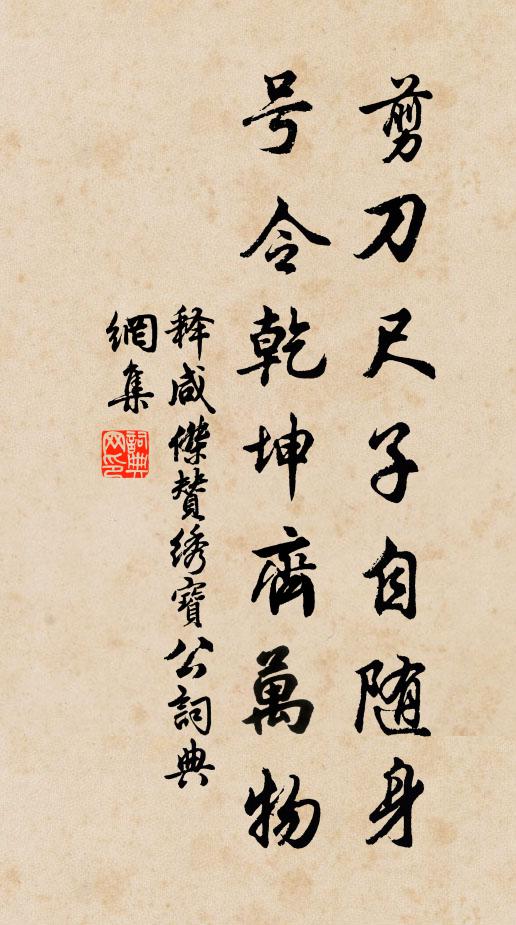 剪刀尺子自随身
号令乾坤齊萬物
释咸傑賛绣寶公詞典
網集
詞典网印